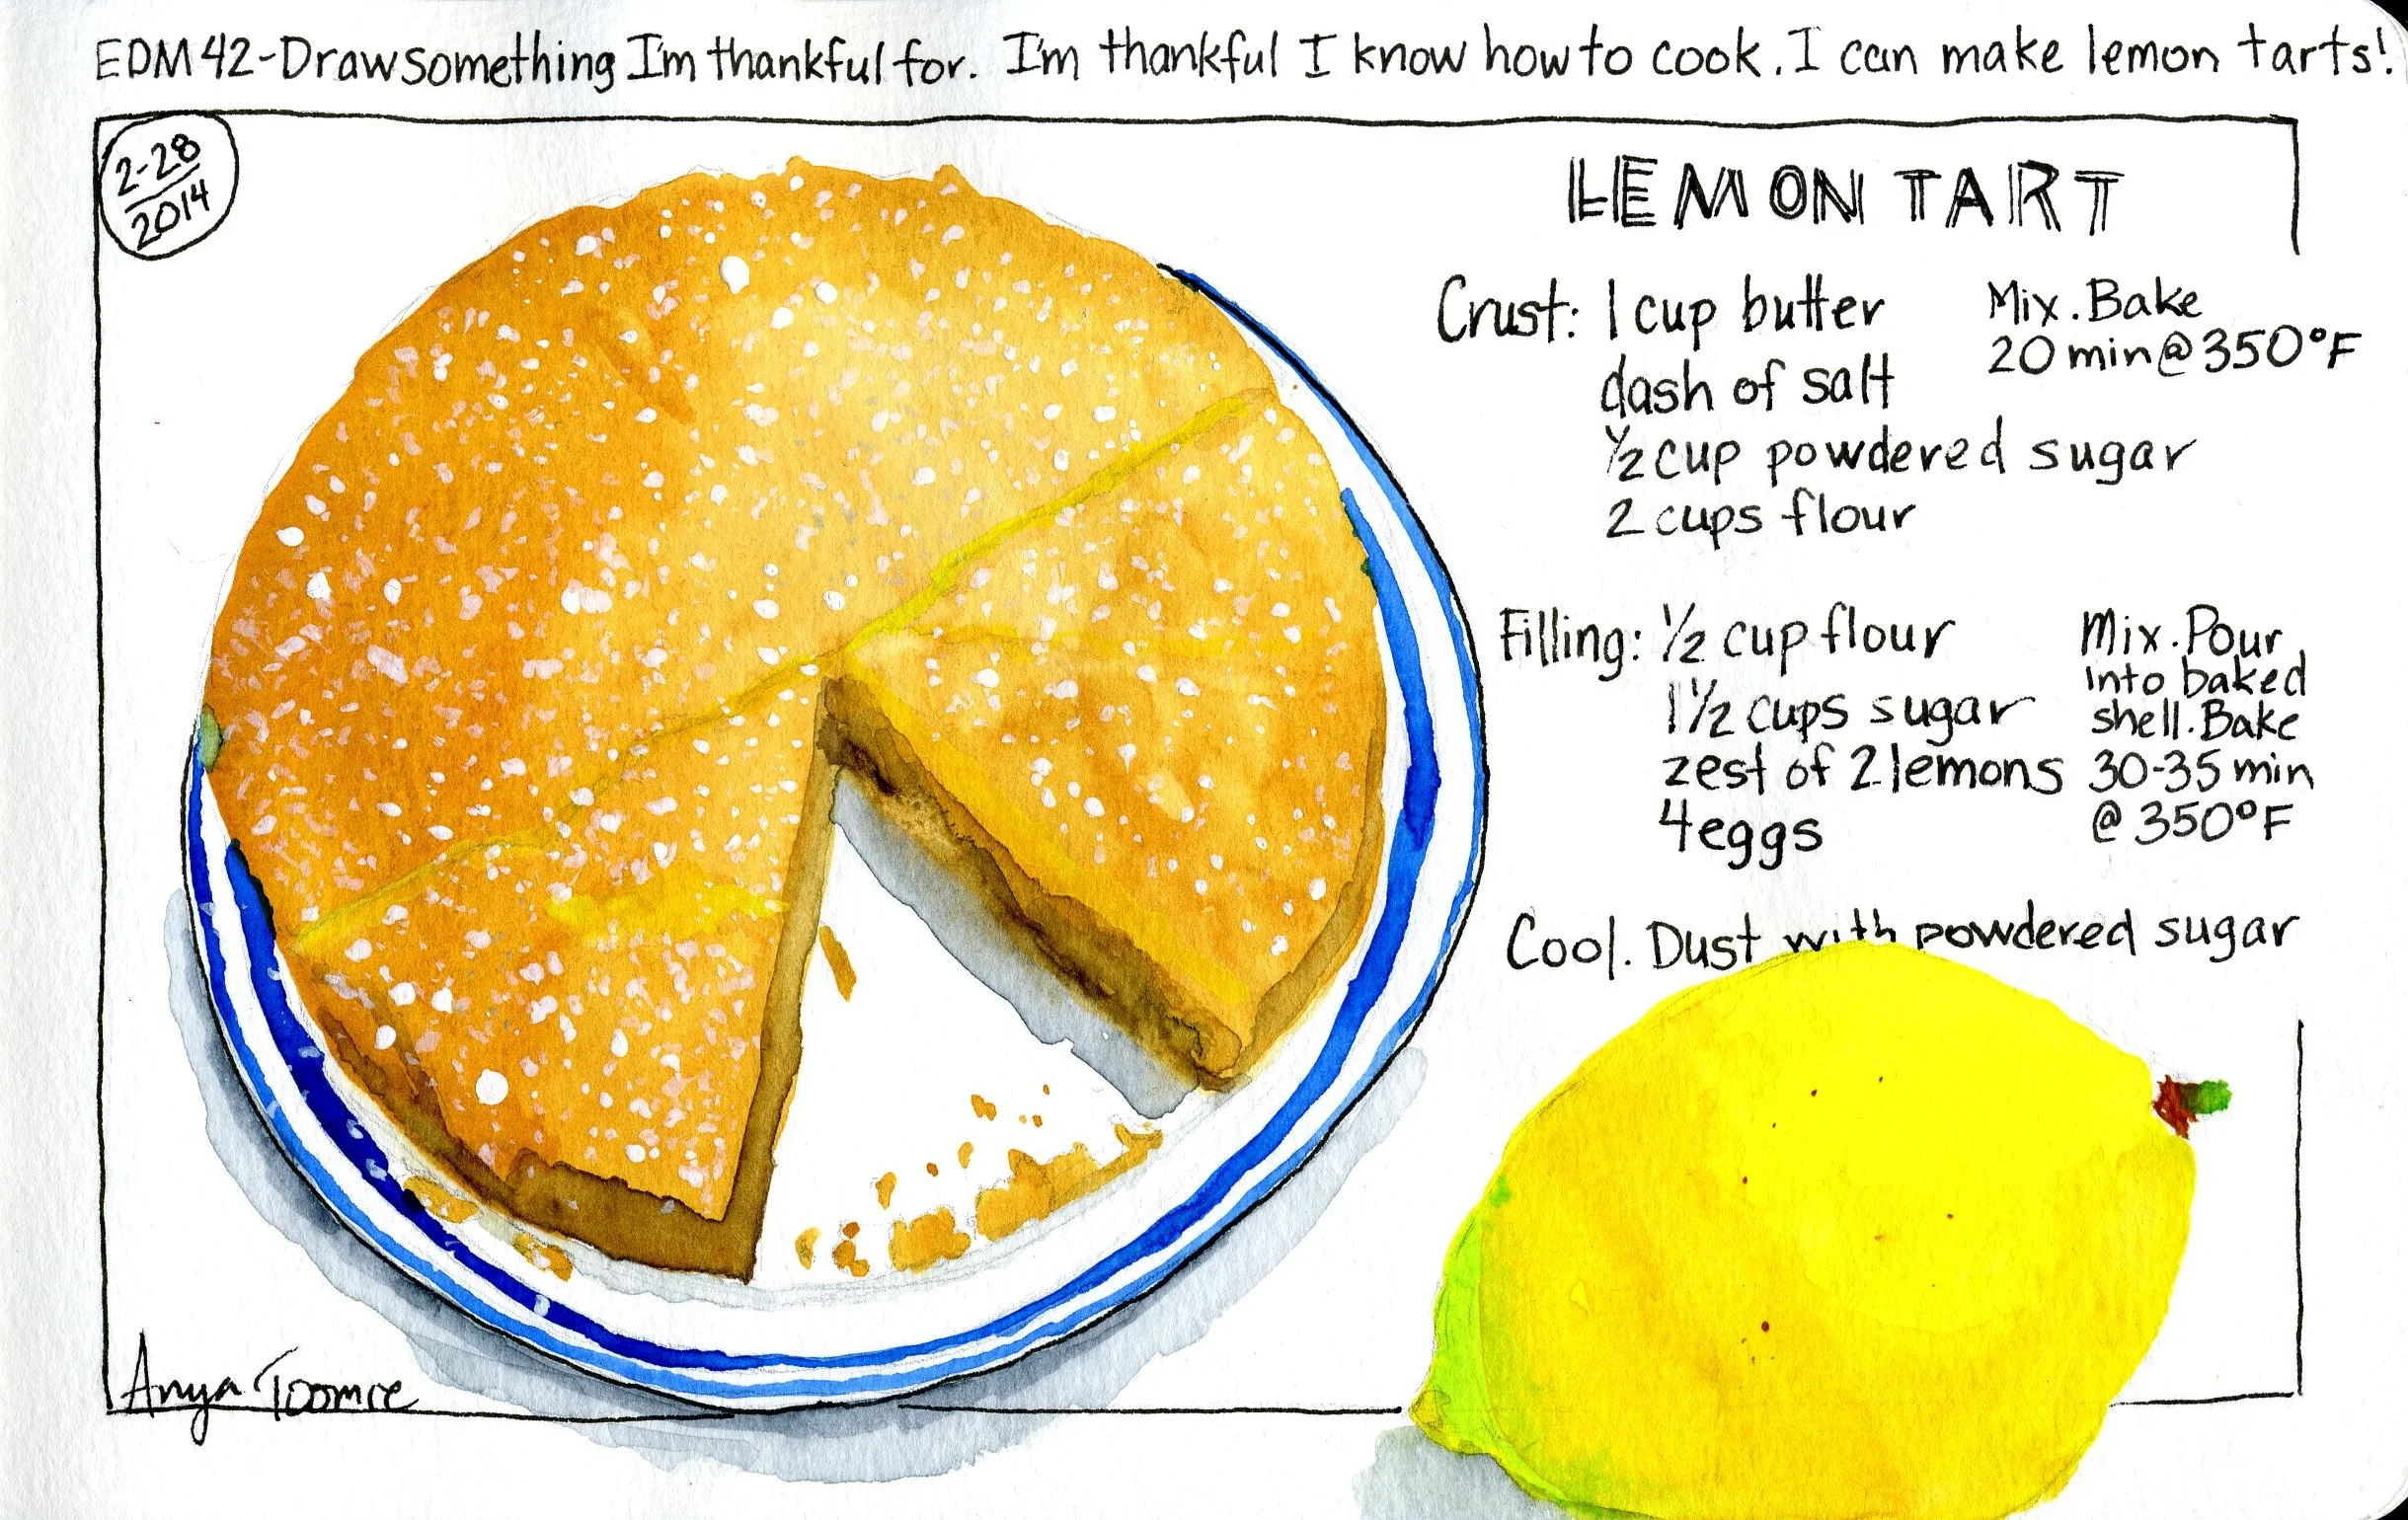 EDM 42-Draw something I'm thankful for. I'm thankful I know how to cook. I can make lemon tarts!
2-28
2014
LEMON TART
Crust: 1 cup butter
dash of salt
½ cup powdered sugar
2 cups flour
Mix. Bake
20 min @ 350°F
Filling: ½ cup flour
1½ cups sugar
zest of 2 lemons
4 eggs
Mix. Pour
into baked
shell. Bake
30-35 min
@ 350°F
Cool. Dust with powdered sugar
Anya Toomre